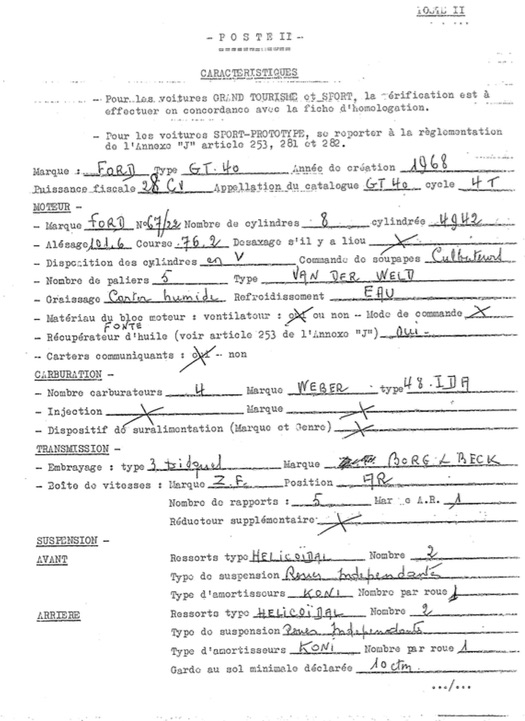 TOME II
- P O S T E II -
CARACTERISTIQUES
- Pour les voitures GRAND TOURISME et SPORT, la vérification est à
effectuer en concordance avec la fiche d'homologation.
- Pour les voitures SPORT-PROTOTYPE, se reporter à la règlementation
de l'Annexe "J" article 253, 281 et 282.
Marque : FORD Type GT.40 Année de création 1968
Puissance fiscale 28 CV Appellation du catalogue GT 40 cycle 4 T
MOTEUR -
- Marque FORD N° 67/22 Nombre de cylindres 8 cylindrée 4942
- Alésage 101.6 Course 76.2 Desaxage s'il y a lieu X
- Disposition des cylindres en V Commande de soupapes Culbuteurs
- Nombre de paliers 5 Type VAN DER WELD
- Graissage Carter humide Refroidissement EAU
- Matériau du bloc moteur : ventilateur : oui ou non - Mode de commande X
FONTE
- Récupérateur d'huile (voir article 253 de l'Annexe "J") oui -
- Carters communiquants : oui - non
CARBURATION -
- Nombre carburateurs 4 Marque WEBER type 48.IDA
- Injection X Marque X
- Dispositif de suralimentation (Marque et Genre) X
TRANSMISSION -
- Embrayage : type 3 Marque BORG & BECK
- Boîte de vitesses : Marque Z.F. Position AR
Nombre de rapports : 5 Marche A.R. 1
Réducteur supplémentaire X
SUSPENSION -
AVANT Ressorts type HELICOÏDAL Nombre 2
Type de suspension Roues Independante
Type d'amortisseurs KONI Nombre par roue 1
ARRIERE Ressorts type HELICOÏDAL Nombre 2
Type de suspension Roues Independante
Type d'amortisseurs KONI Nombre par roue 1
Garde au sol minimale déclarée 10 ctm
.../...